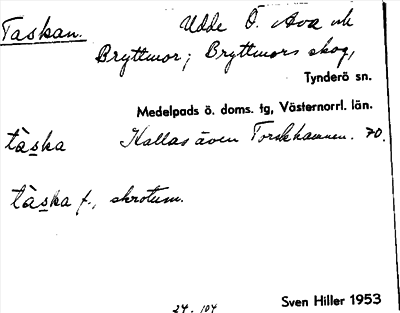 Taskan. Udde Ö. Ava och
Bryttmor; Bryttmors skog,
Tynderö sn.
Medelpads ö. doms. tg, Västernorrl. län.
tàska Kallas även Torskhamnen. 70.
tàska f., skrotum.
24. 104 Sven Hiller 1953